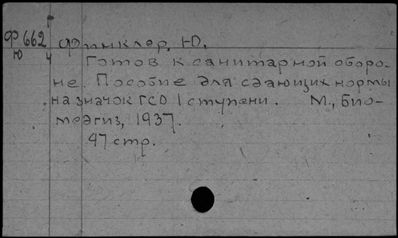 Ф 662
Ю 4
Финклер, Ю.
Готов к санитарной оборо-
не. Пособие для сдающих нормы
на значок ГСО I ступени. М., Био-
медгиз, 1937.
47 стр.